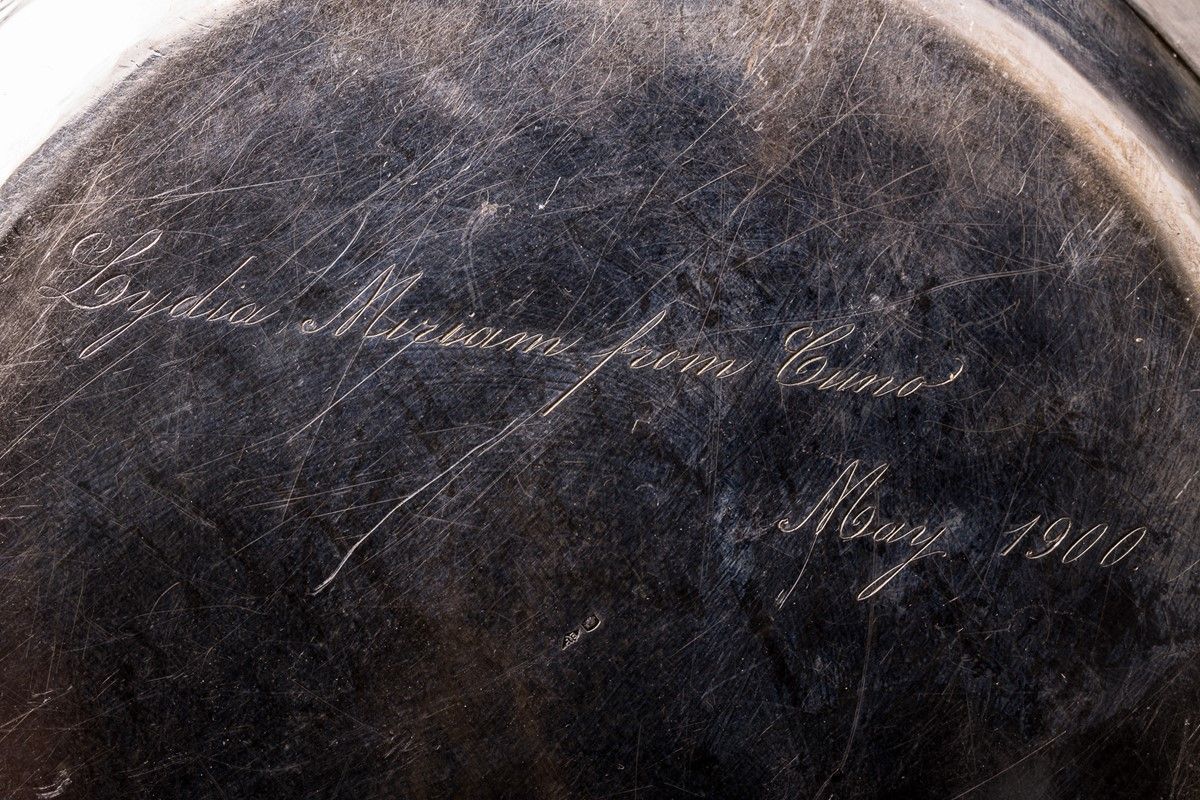 Lydia Miriam from Cuno
May 1900